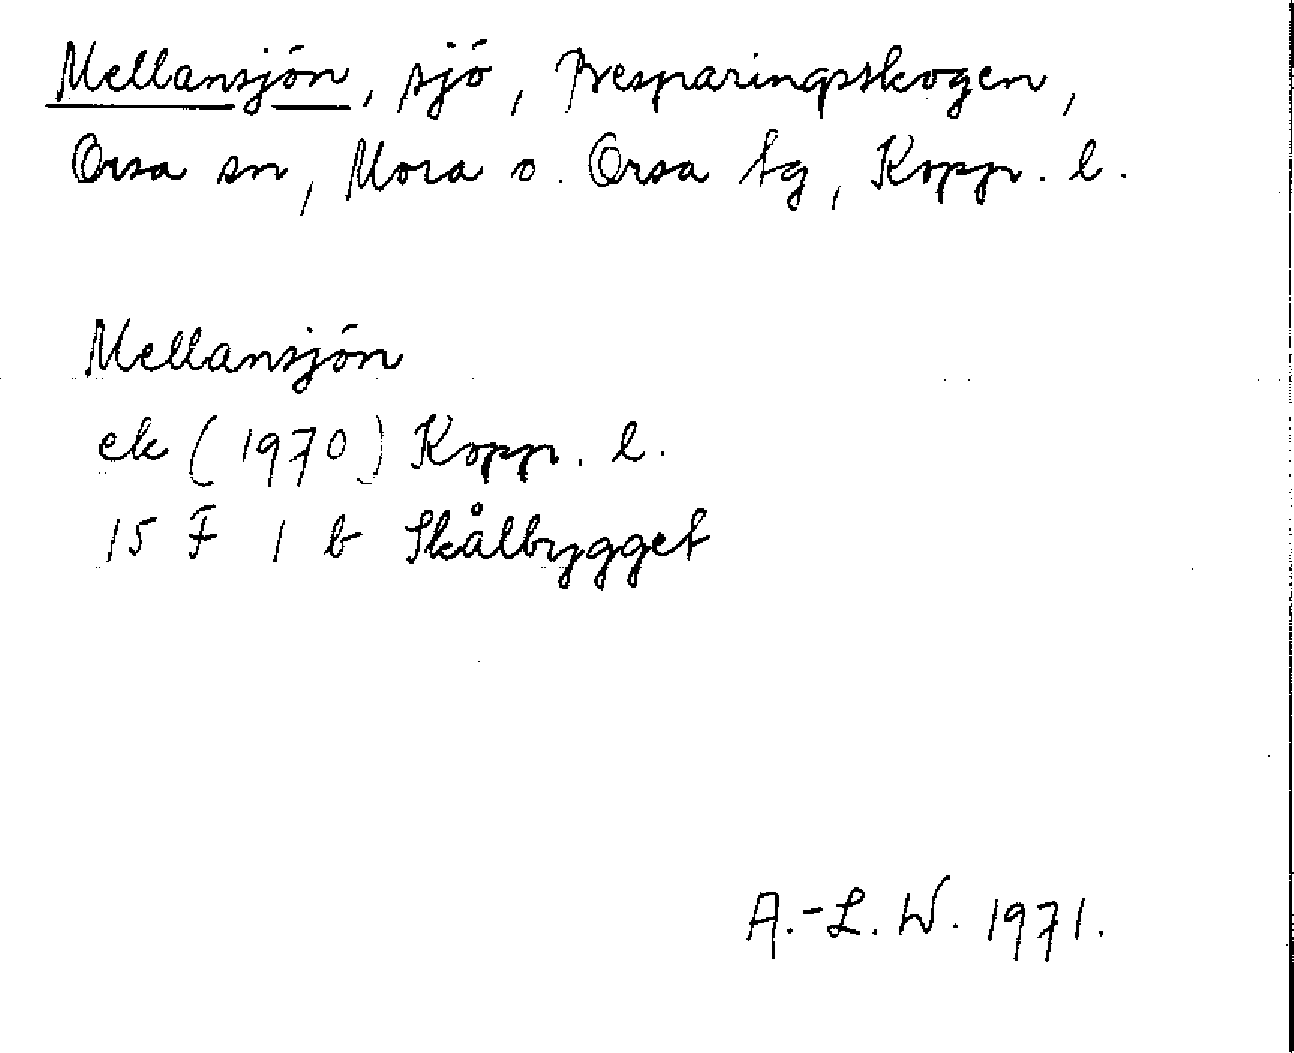 Mellansjön, sjö, Besparingsskogen,
Orsa sn, Mora o. Orsa tg, Kopp. l.
Mellansjön
ek (1970) Kopp. l.
15 F 1 b Skålbygget
A.-L. W. 1971.